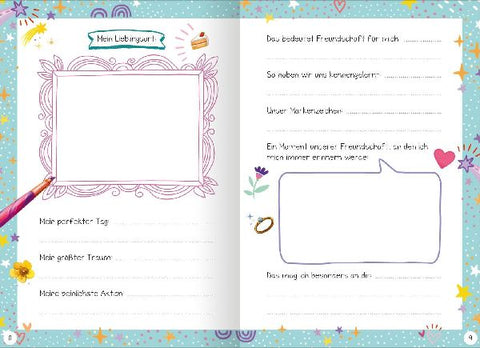 Mein Lieblingsort:
Mein perfekter Tag:
Mein größter Traum:
Meine peinlichste Aktion:
8
Das bedeutet Freundschaft für mich:
So haben wir uns kennengelernt:
Unser Markenzeichen:
Ein Moment unserer Freundschaft, an den ich
mich immer erinnern werde:
Das mag ich besonders an dir:
9